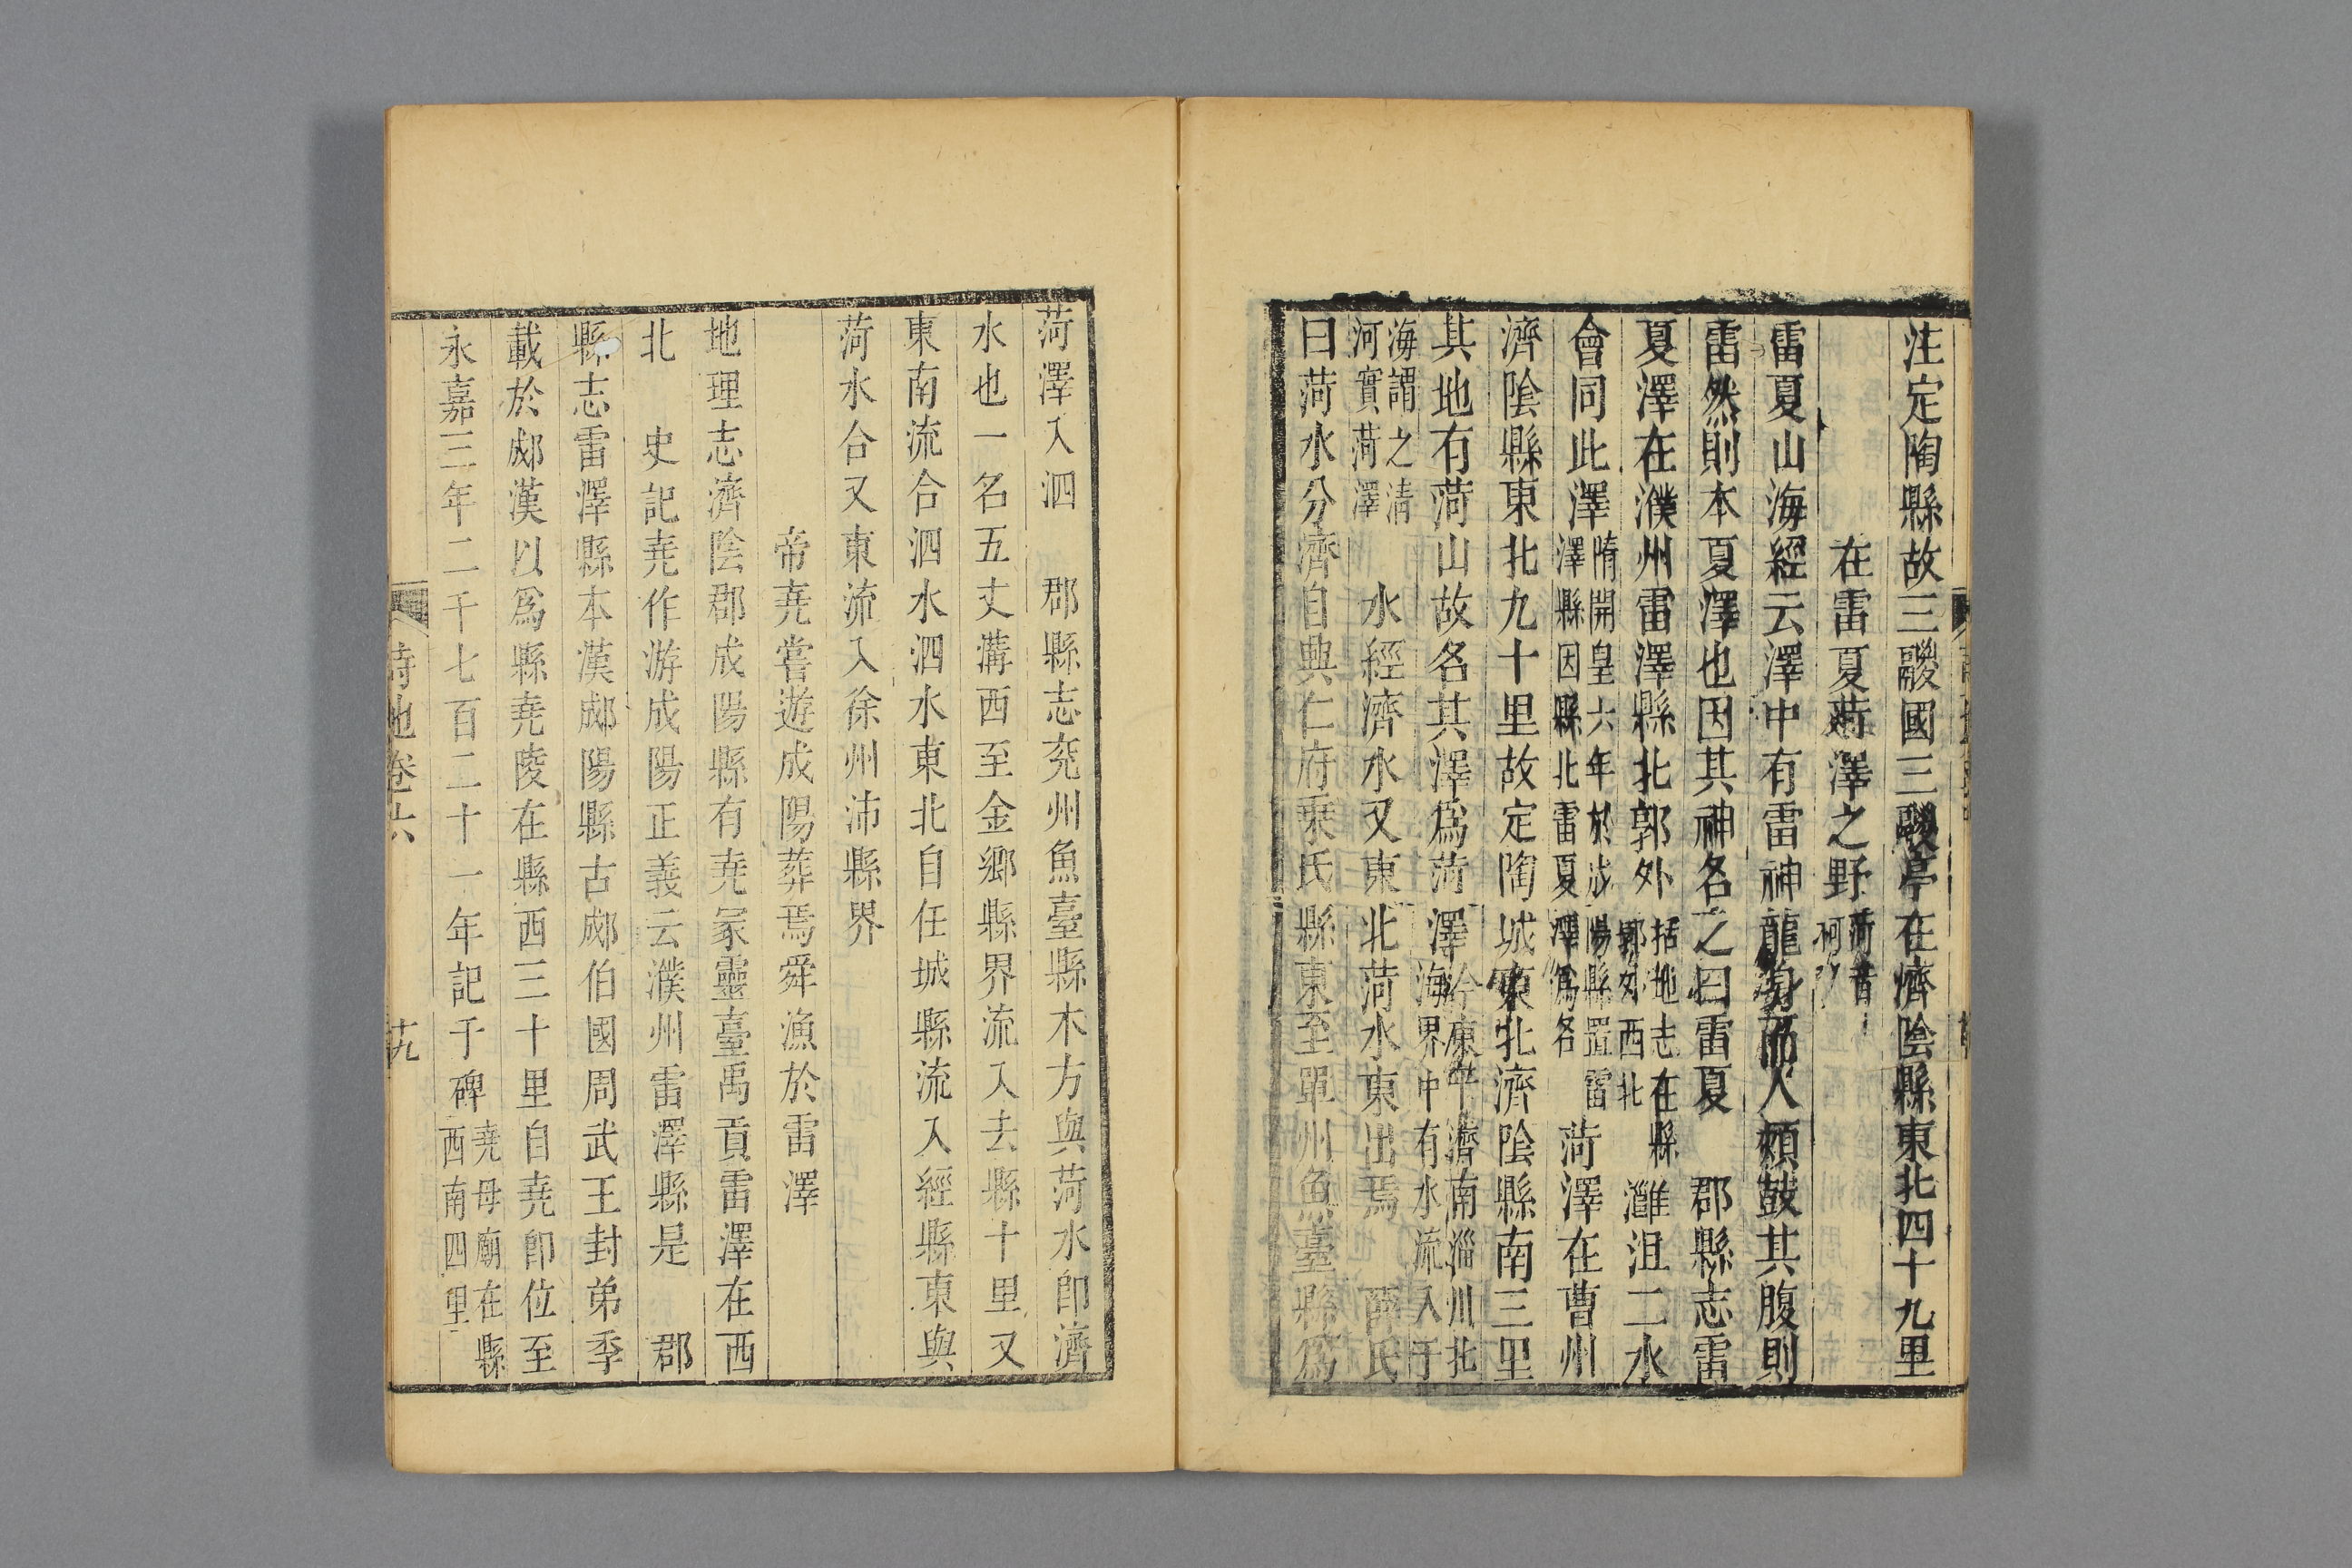 注定陶縣故三鬷國三鬷亭在濟陰縣東北四十九里
在雷夏菏澤之野菏音柯
雷夏山海經云澤中有雷神龍身而人頰鼓其腹則
雷然則本夏澤也因其神名之曰雷夏 郡縣志雷
夏澤在濮州雷澤縣北郭外括地志在縣郭外西北 灉沮二水
會同此澤隋開皇六年於成陽縣置雷澤縣因縣北雷夏澤爲名 菏澤在曹州
濟陰縣東北九十里故定陶城東北濟陰縣南三里
其地有菏山故名其澤爲菏澤今東平濟南淄川北海界中有水流入于
海謂之清河實菏澤 水經濟水又東北菏水東出焉 薛氏
曰菏水分濟自興仁府乘氏縣東至單州魚臺縣爲
菏澤入泗 郡縣志兖州魚臺縣木方與菏水卽濟
水也一名五丈溝西至金鄉縣界流入去縣十里又
東南流合泗水泗水東北自任城縣流入經縣東與
菏水合又東流入徐州沛縣界
帝堯嘗遊成陽葬焉舜漁於雷澤
地理志濟陰郡成陽縣有堯冢靈臺禹貢雷澤在西
北 史記堯作游成陽正義云濮州雷澤縣是 郡
縣志雷澤縣本漢郕陽縣古郕伯國周武王封弟季
載於郕漢以爲縣堯陵在縣西三十里自堯卽位至
永嘉三年二千七百二十一年記于碑堯母廟在縣西南四里
詩地卷六
十九